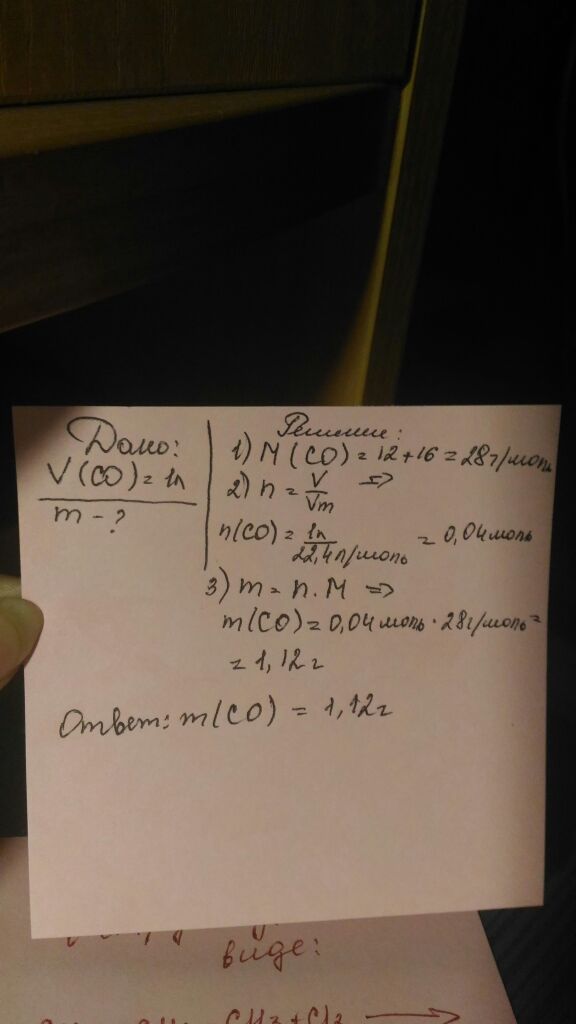 Дано:
V(CO) = 1л
m - ?
Решение:
1) M(CO) = 12+16 = 28г/моль
2) n = V/Vm =>
n(CO) = 1л/22,4л/моль = 0,04моль
3) m = n.M =>
m(CO) = 0,04моль · 28г/моль =
= 1,12г
Ответ: m(CO) = 1,12г
виде:
CH3+Cl2